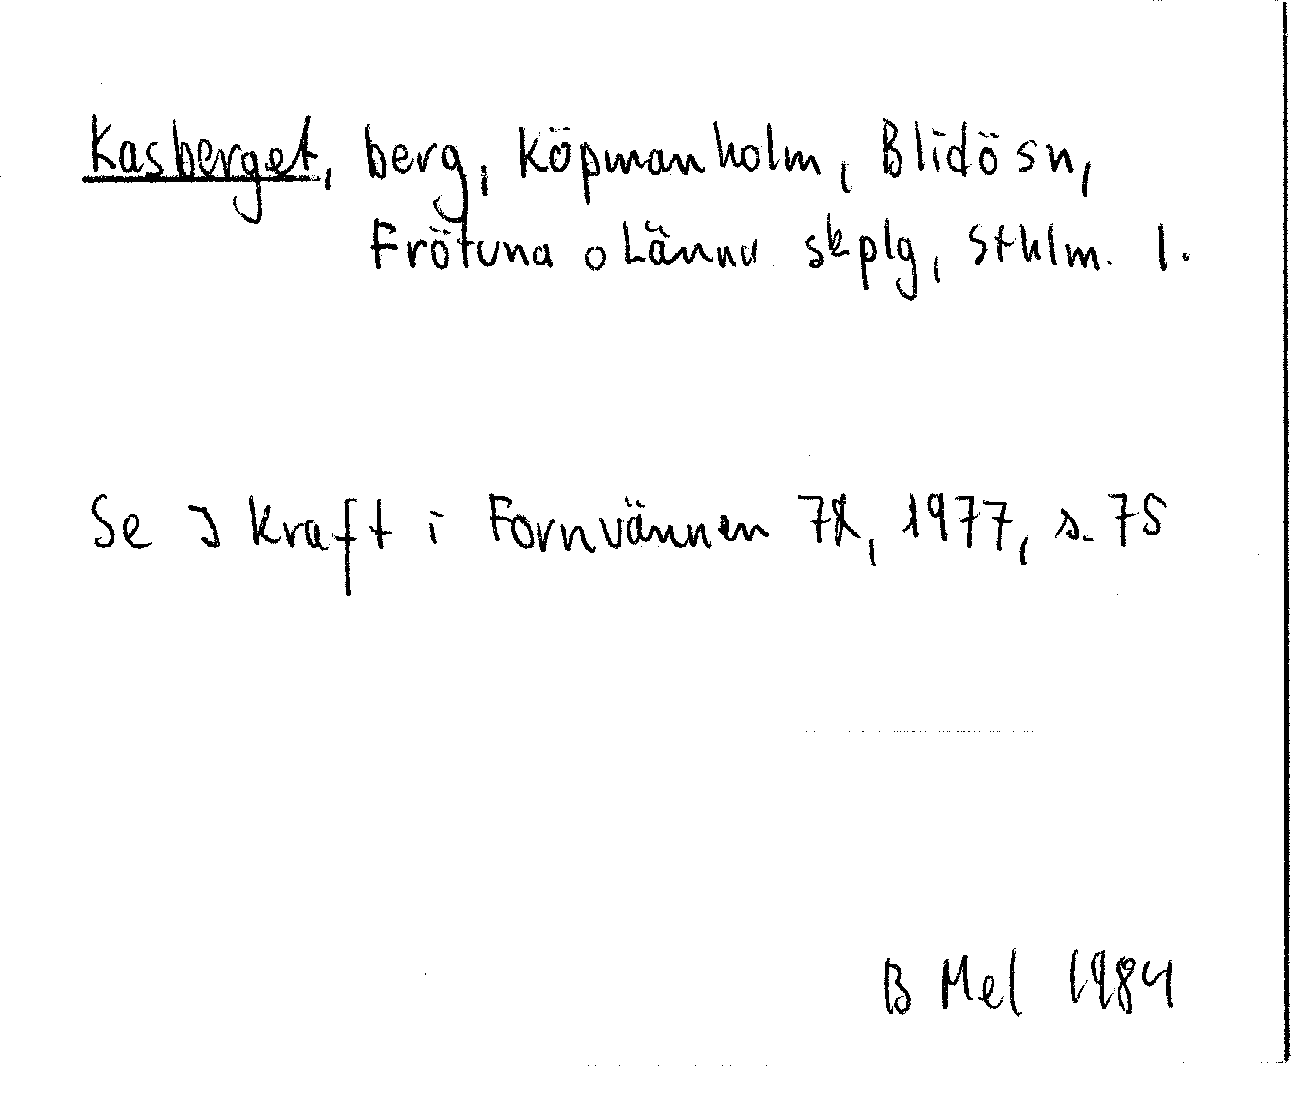 Kasberget, berg, Köpmanholm, Blidö sn,
Frötuna o Länna skplg, Sthlm. l.
Se J Kraft i Fornvännen 72, 1977, s. 75
B Mel 1984